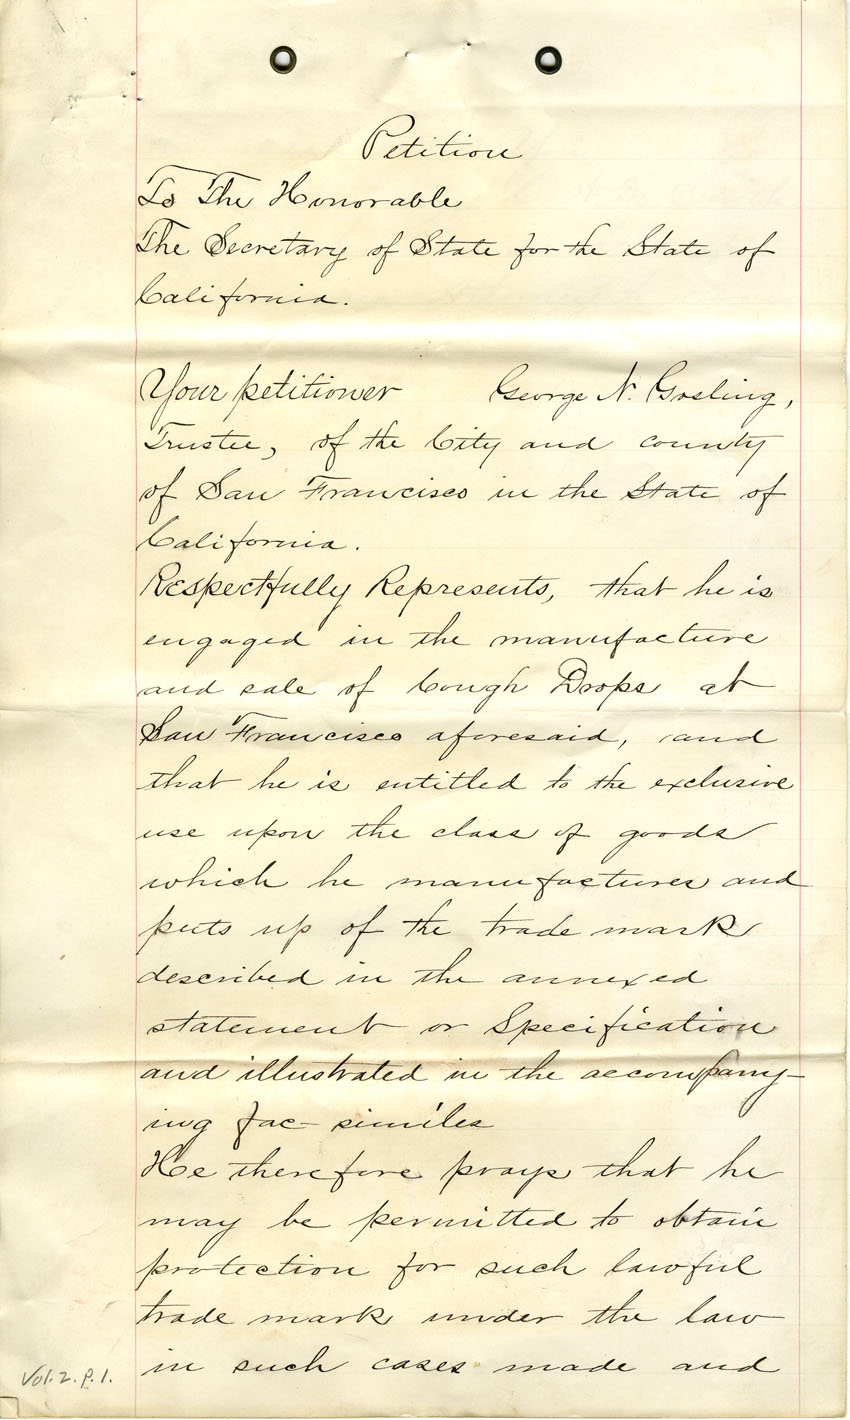 Petition
To The Honorable
The Secretary of State for the State of
California.
Your petitioner George N. Gosling,
Trustee, of the City and county
of San Francisco in the State of
California.
Respectfully Represents, that he is
engaged in the manufacture
and sale of Cough Drops at
San Francisco aforesaid, and
that he is entitled to the exclusive
use upon the class of goods
which he manufactures and
puts up of the trade mark
described in the annexed
statement or Specification
and illustrated in the accompany-
ing fac-similes
He therefore prays that he
may be permitted to obtain
protection for such lawful
trade mark under the law
in such cases made and
Vol. 2. P. 1.